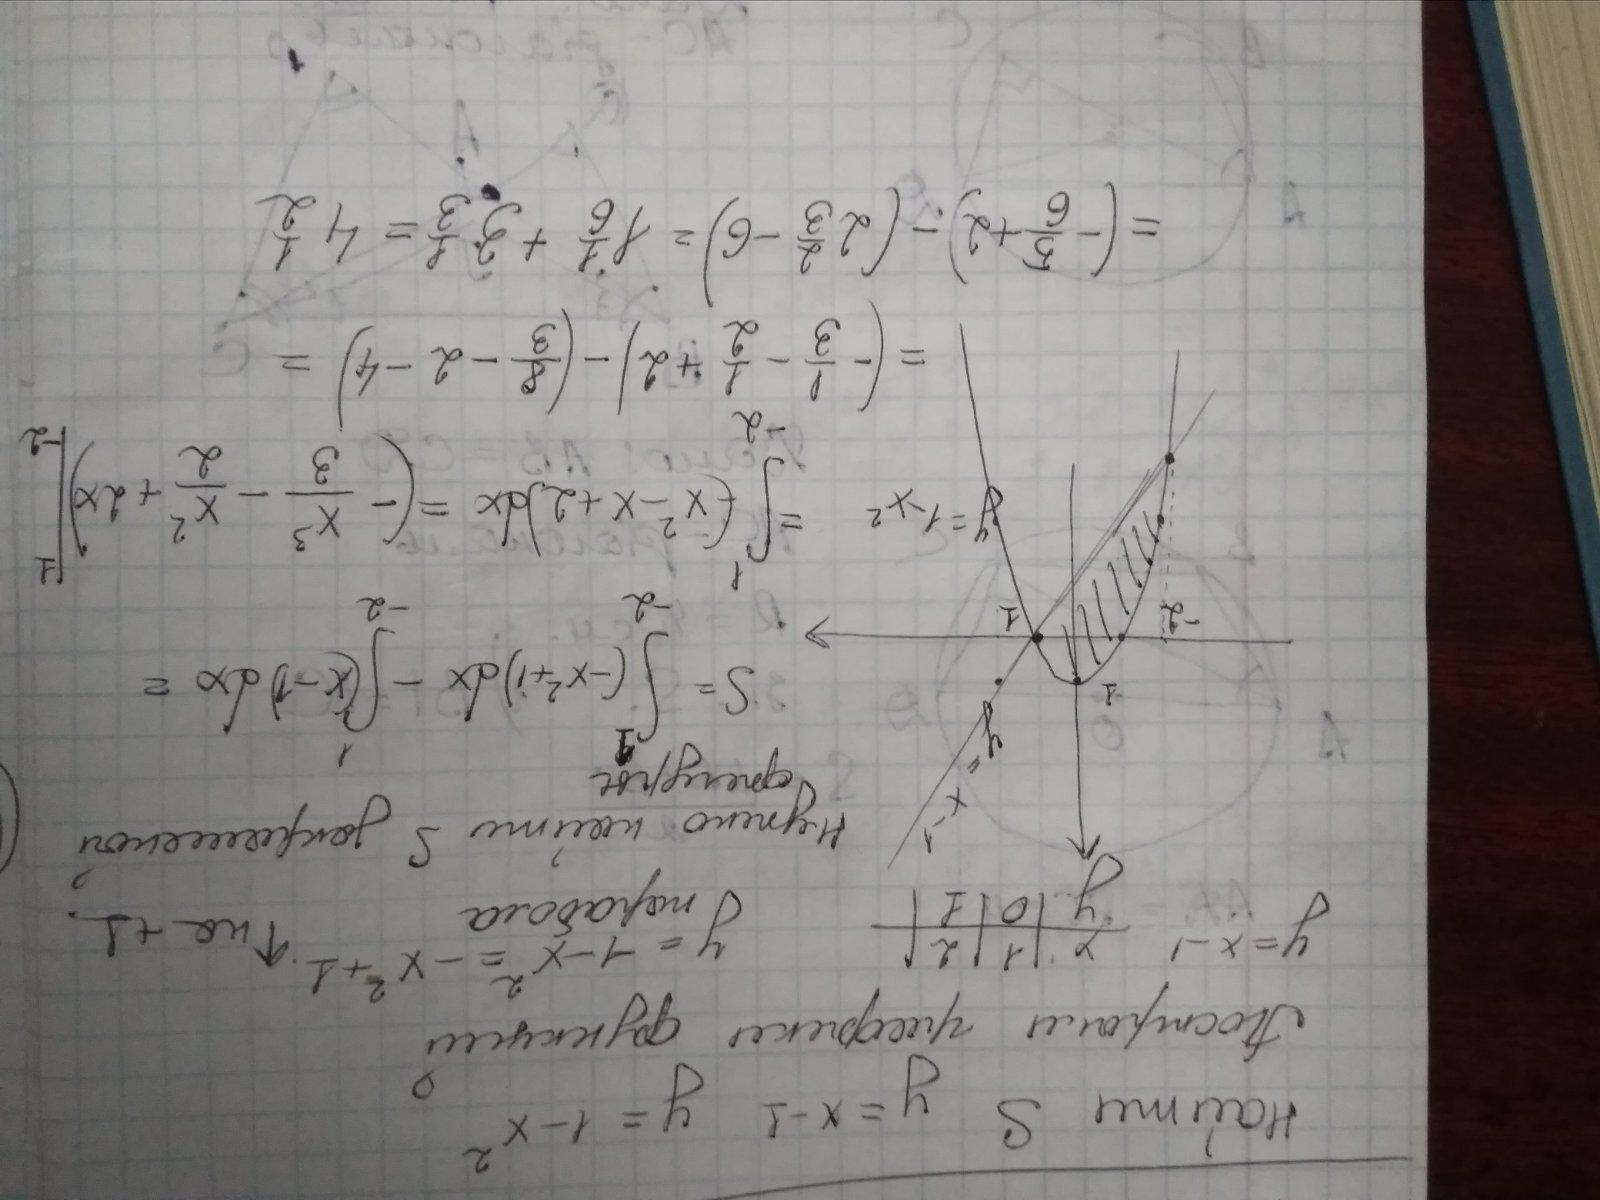 Найти S y = x-1 y = 1-x²
Построим графики функций
y = x-1
x | 1 | 2 |
y | 0 | 1 |
y = 1-x² = -x²+1 ↑ на +1
парабола
Нужно найти S закрашенной
фигуры
y = x-1
y = 1-x²
1
1
-2
S = ∫₋₂¹ (-x²+1)dx - ∫₋₂¹ (x-1)dx =
= ∫₋₂¹ (-x²-x+2)dx = (-x³/3 - x²/2 + 2x) |₋₂¹
= (-1/3 - 1/2 + 2) - (8/3 - 2 - 4) =
= (-5/6 + 2) - (2 2/3 - 6) = 1 1/6 + 3 1/3 = 4 1/2